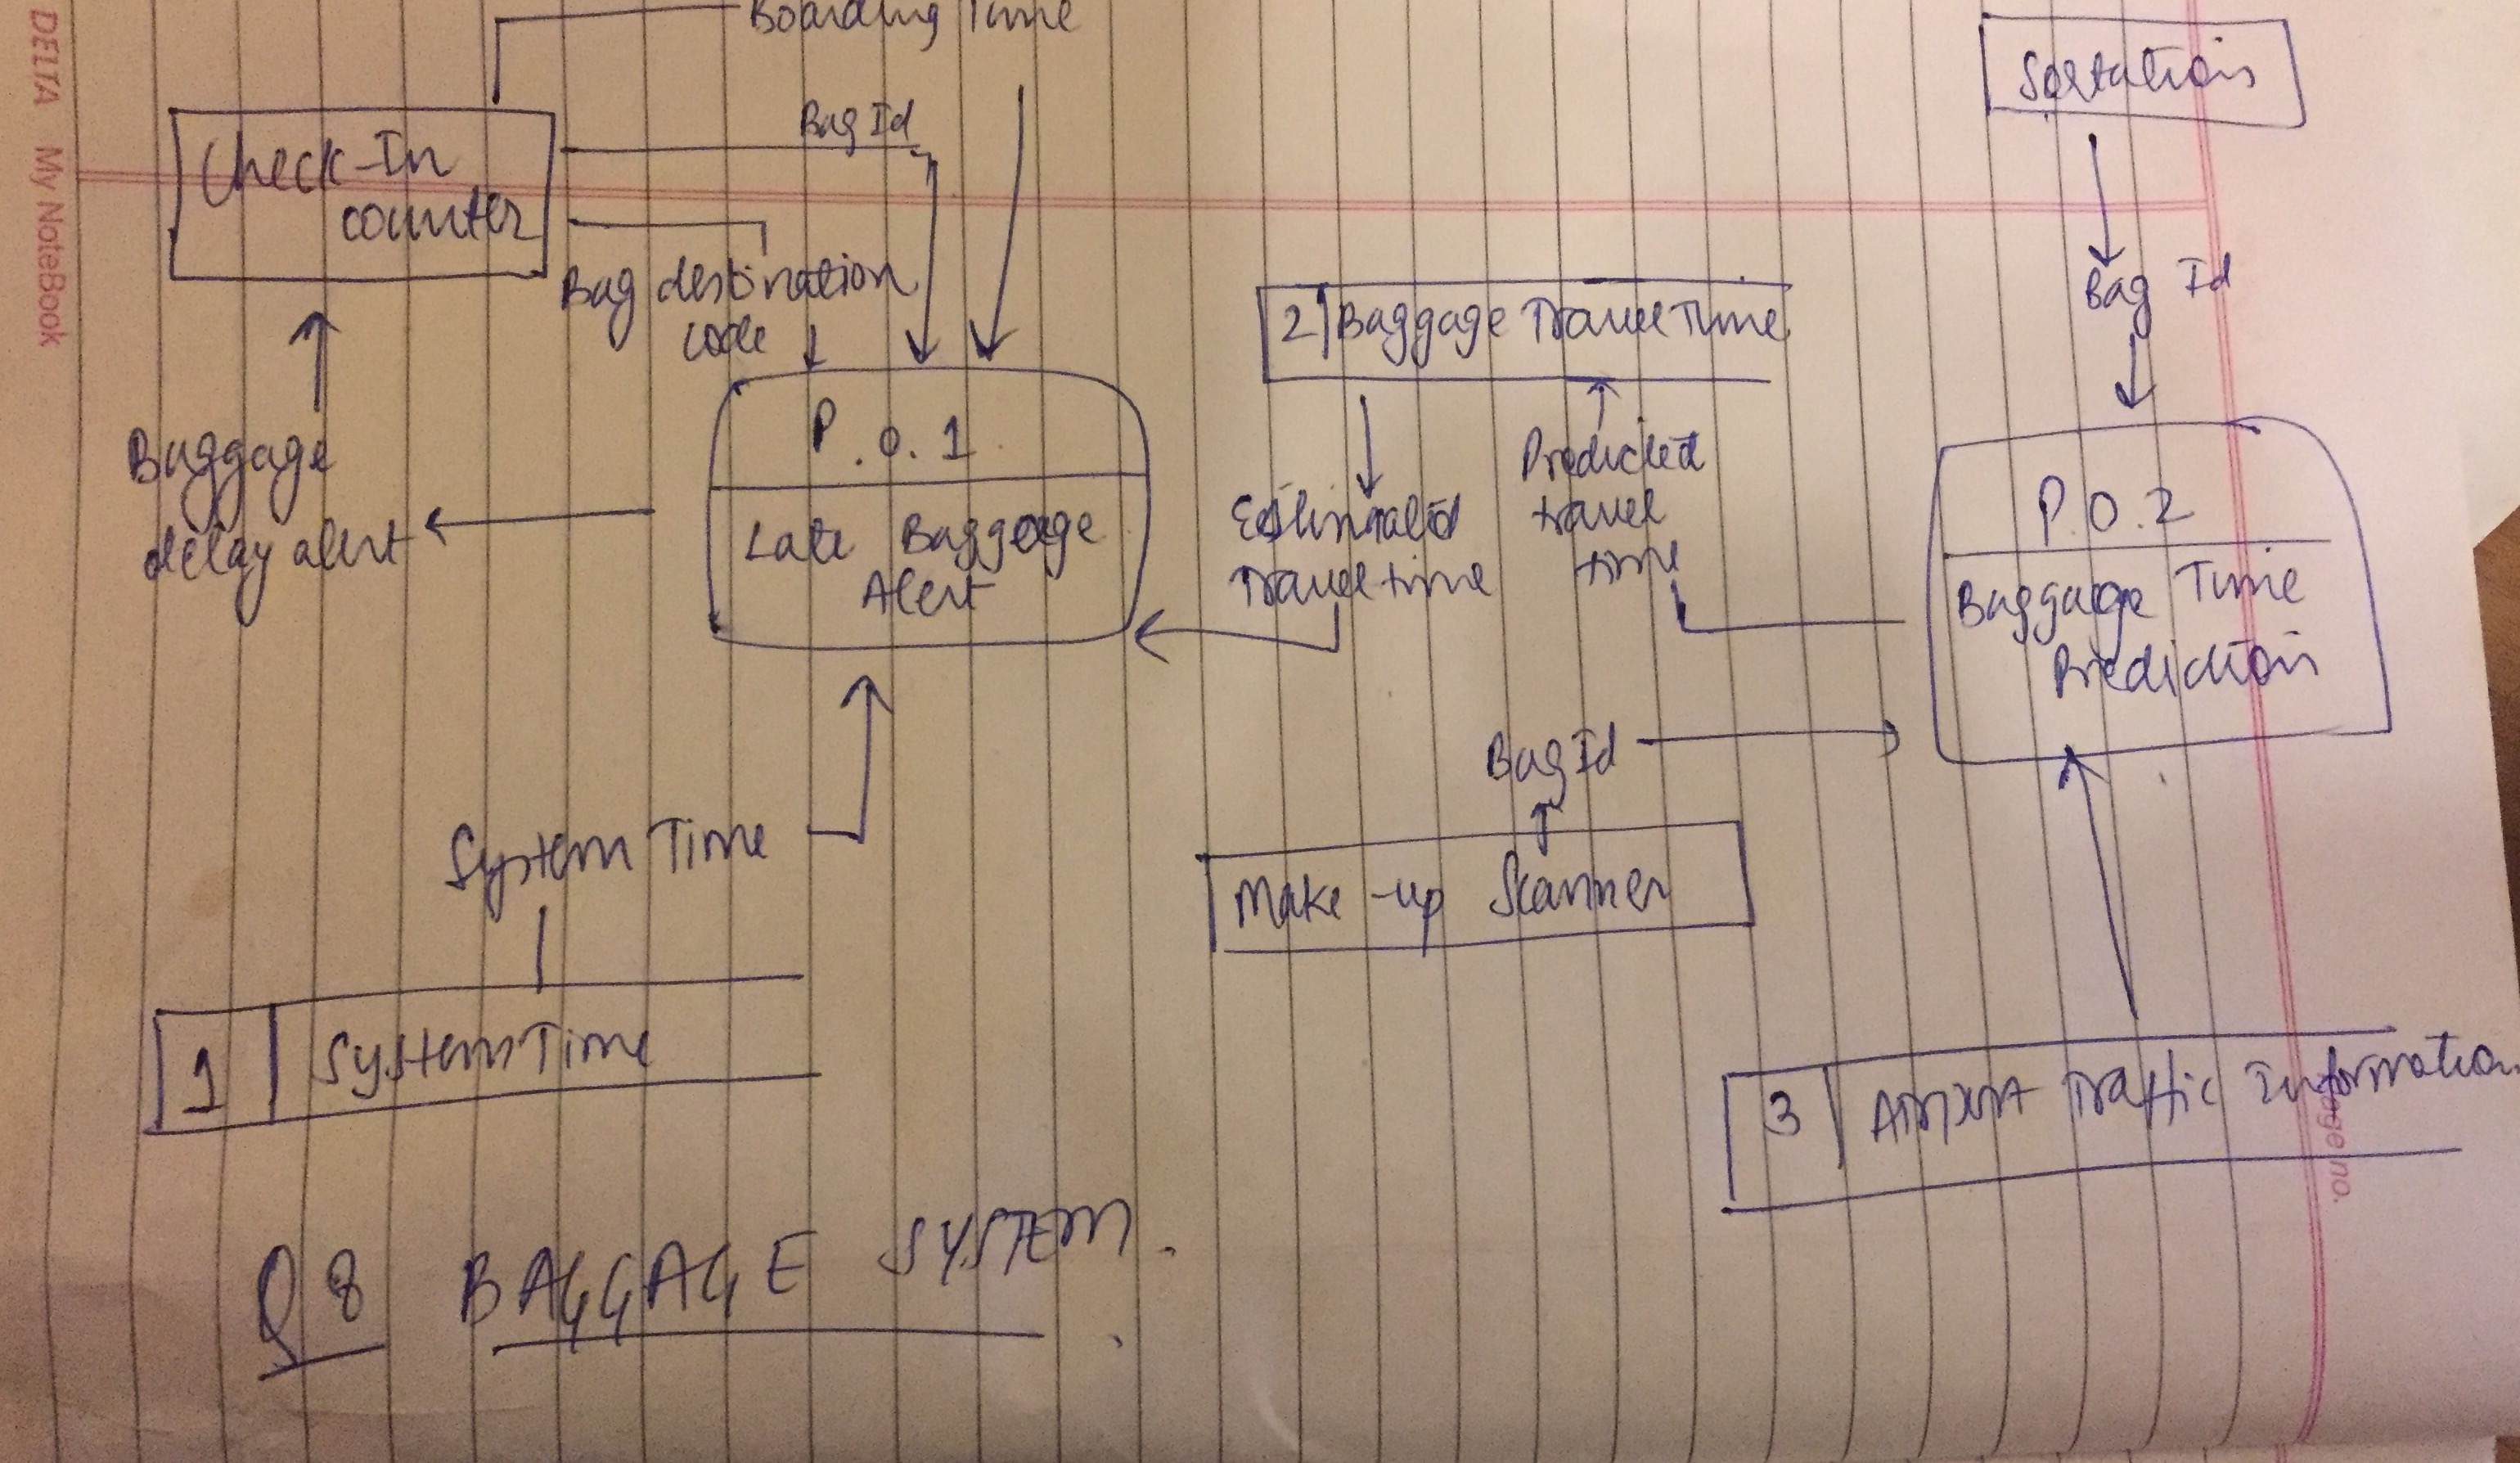 Boarding Time
Sortation
Bag Id
Check-In
counter
Bag destination
code
Bag Id
2 Baggage Travel Time
P.0.1
Late Baggage
Alert
Baggage
delay alert
Estimated
Travel time
Predicted
travel
time
P.0.2
Baggage Time
Prediction
Bag Id
System Time
Make-up Scanner
1 System Time
3 Airport Traffic Information
Q8 BAGGAGE SYSTEM.
DELTA My NoteBook
Page no.